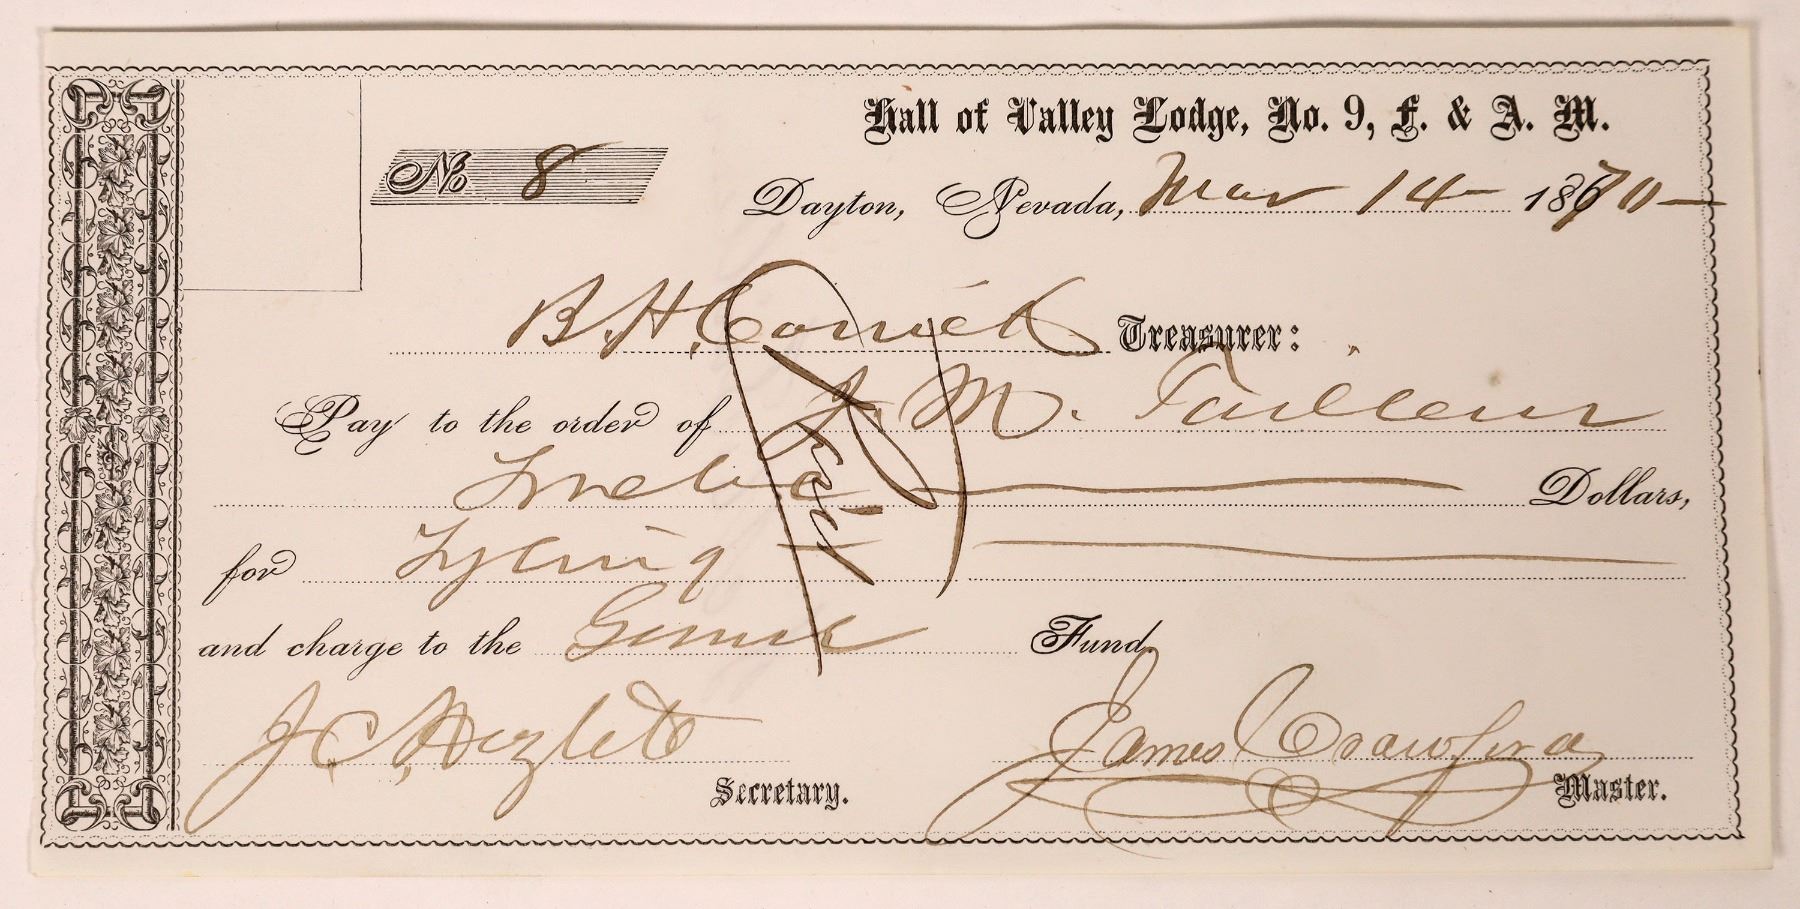 Hall of Valley Lodge, No. 9, F. & A. M.
No 8
Dayton, Nevada, Mar 14 1870
B. H. Treasurer:
Pay to the order of J. M.
Twelve Dollars,
for
and charge to the Fund.
Paid
J. C. Hazlett
Secretary.
James Crawford
Master.